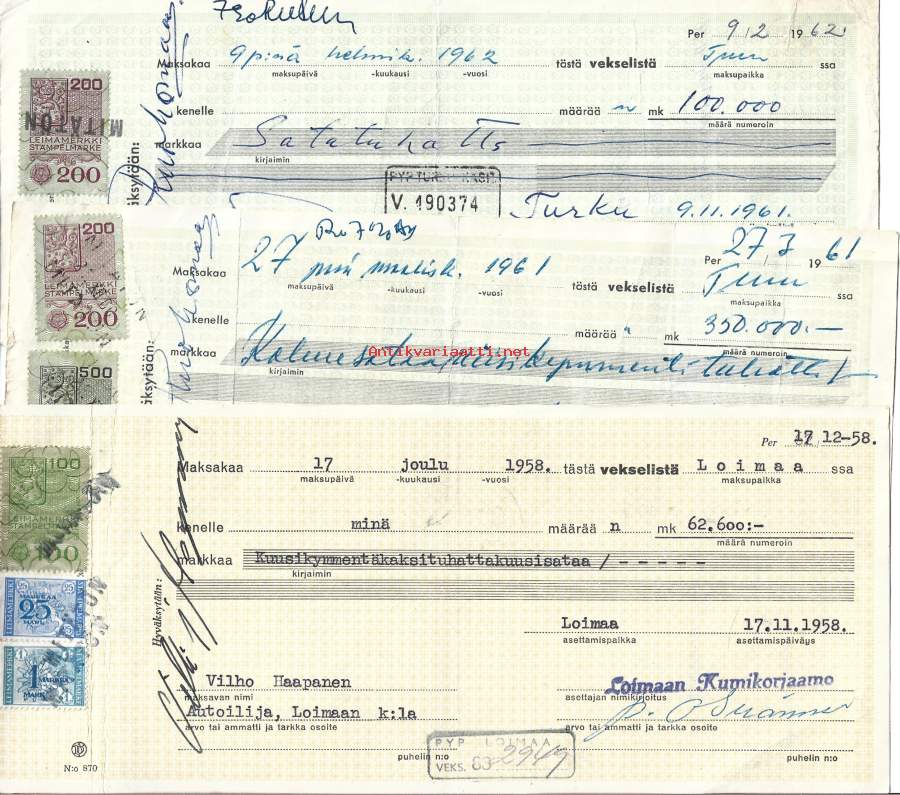 Per 9/2 1962
Maksakaa 9 pinä helmik. 1962 tästä vekselistä Turu ssa
maksupäivä -kuukausi -vuosi maksupaikka
kenelle määrää n mk 100.000
määrä numeroin
markkaa Satatuhatta
kirjaimin
200
MITÄTÖN
LEIMAMERKKI
STÄMPELMARKE
200
PYP TURKU KASIT.
V. 190374
Turku 9.11.1961.
Per 27 3 1961
Maksakaa 27 pnä maalisk. 1961 tästä vekselistä Turu ssa
maksupäivä -kuukausi -vuosi maksupaikka
kenelle määrää " mk 350.000.-
määrä numeroin
markkaa Kolmesataaviisikymmentätuhatta
kirjaimin
Antikvariaatti.net
200
LEIMAMERKKI
STÄMPELMARKE
200
500
Per 17 12-58.
Maksakaa 17 joulu 1958. tästä vekselistä Loimaa ssa
maksupäivä -kuukausi -vuosi maksupaikka
kenelle minä määrää n mk 62.600:-
määrä numeroin
markkaa Kuusikymmentäkaksituhattakuusisataa/-----
kirjaimin
Hyväksytään:
100
LEIMAMERKKI
STÄMPELMARKE
100
LEIMAMERKKI
MARKKAA
25
MARK
1
MARKKA
MARK
Loimaa 17.11.1958.
asettamispaikka asettamispäiväys
Vilho Haapanen
maksavan nimi
Loimaan Kumikorjaamo
asettajan nimikirjoitus
Autoilija, Loimaan k:la
arvo tai ammatti ja tarkka osoite arvo tai ammatti ja tarkka osoite
puhelin n:o puhelin n:o
PYP LOIMAA
VEKS. 63 2949
N:o 870